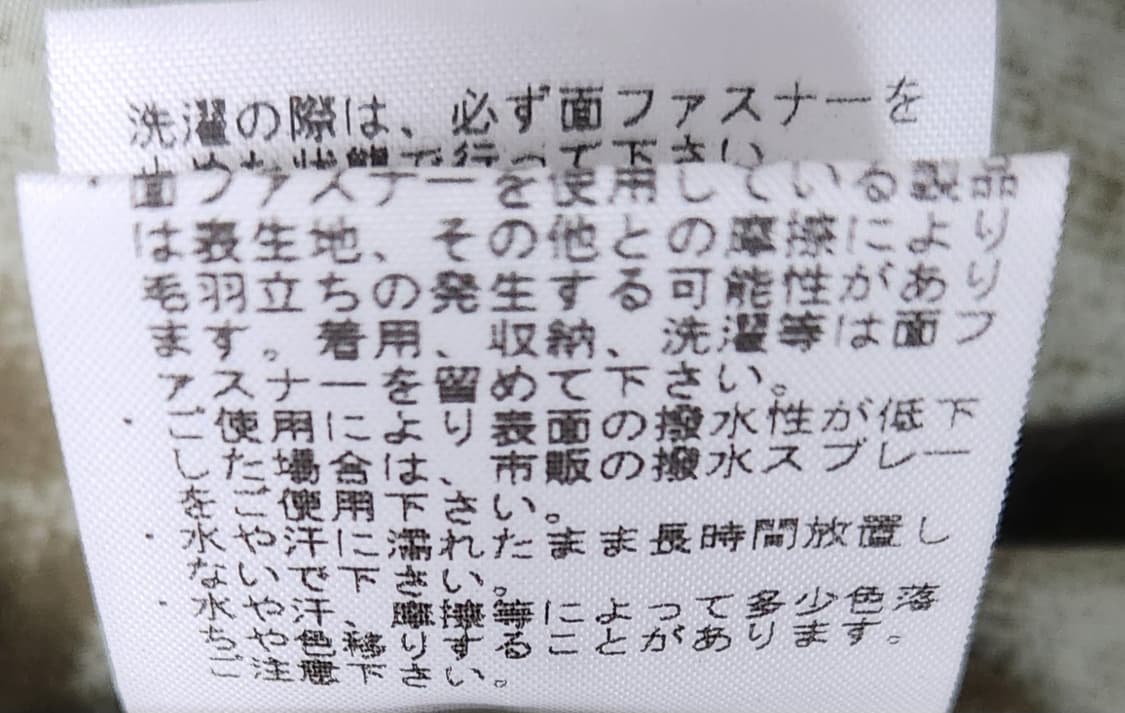 洗濯の際は、必ず面ファスナーを
止めた状態で行って下さい
・面ファスナーを使用している製品
は表生地、その他との摩擦により
毛羽立ちの発生する可能性があり
ます。着用、収納、洗濯等は面フ
ァスナーを留めて下さい。
・ご使用により表面の撥水性が低下
した場合は、市販の撥水スプレー
をご使用下さい。
・水や汗に濡れたまま長時間放置し
ないで下さい。
・水や汗、摩擦等によって多少色落
ちや色移りすることがあります。
ご注意下さい。